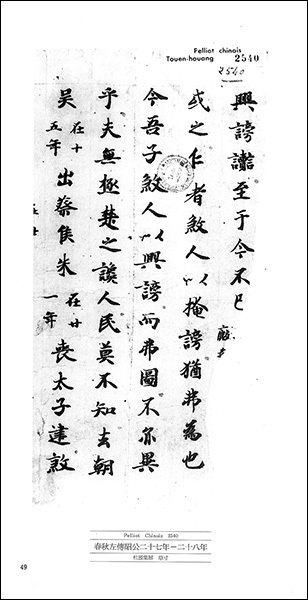 Pelliot chinois
Touen-houang 2540
2540
興謗讟至于今不已
或之仁者煞人以掩謗猶弗為也
今吾子煞人以興謗而弗圖不亦異
乎夫無極楚之讒人民莫不知去朝
吳 在十五年 出蔡侯朱 在廿一年 喪太子建煞
Pelliot Chinois 2540
春秋左傳昭公二十七年－二十八年
杜預集解
49